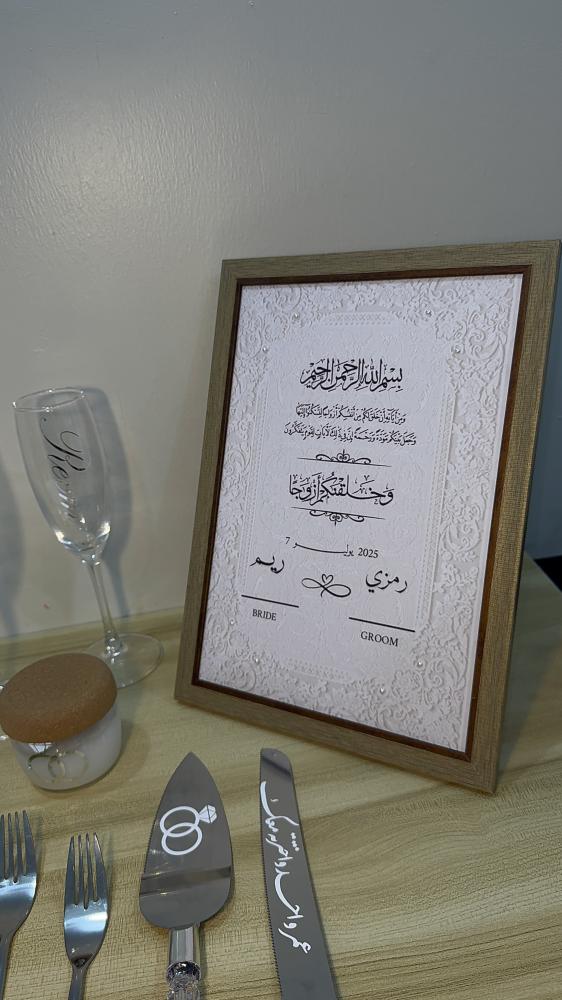 بِسْمِ اللهِ الرَّحْمَنِ الرَّحِيمِ
وَمِنْ آيَاتِهِ أَنْ خَلَقَ لَكُمْ مِنْ أَنْفُسِكُمْ أَزْوَاجًا لِتَسْكُنُوا إِلَيْهَا
وَجَعَلَ بَيْنَكُمْ مَوَدَّةً وَرَحْمَةً إِنَّ فِي ذَلِكَ لَآيَاتٍ لِقَوْمٍ يَتَفَكَّرُونَ
وَخَلَقْنَٰكُمْ أَزْوَٰجًا
7 يوليــــو 2025
رمزي ريم
BRIDE GROOM
عمر واحد